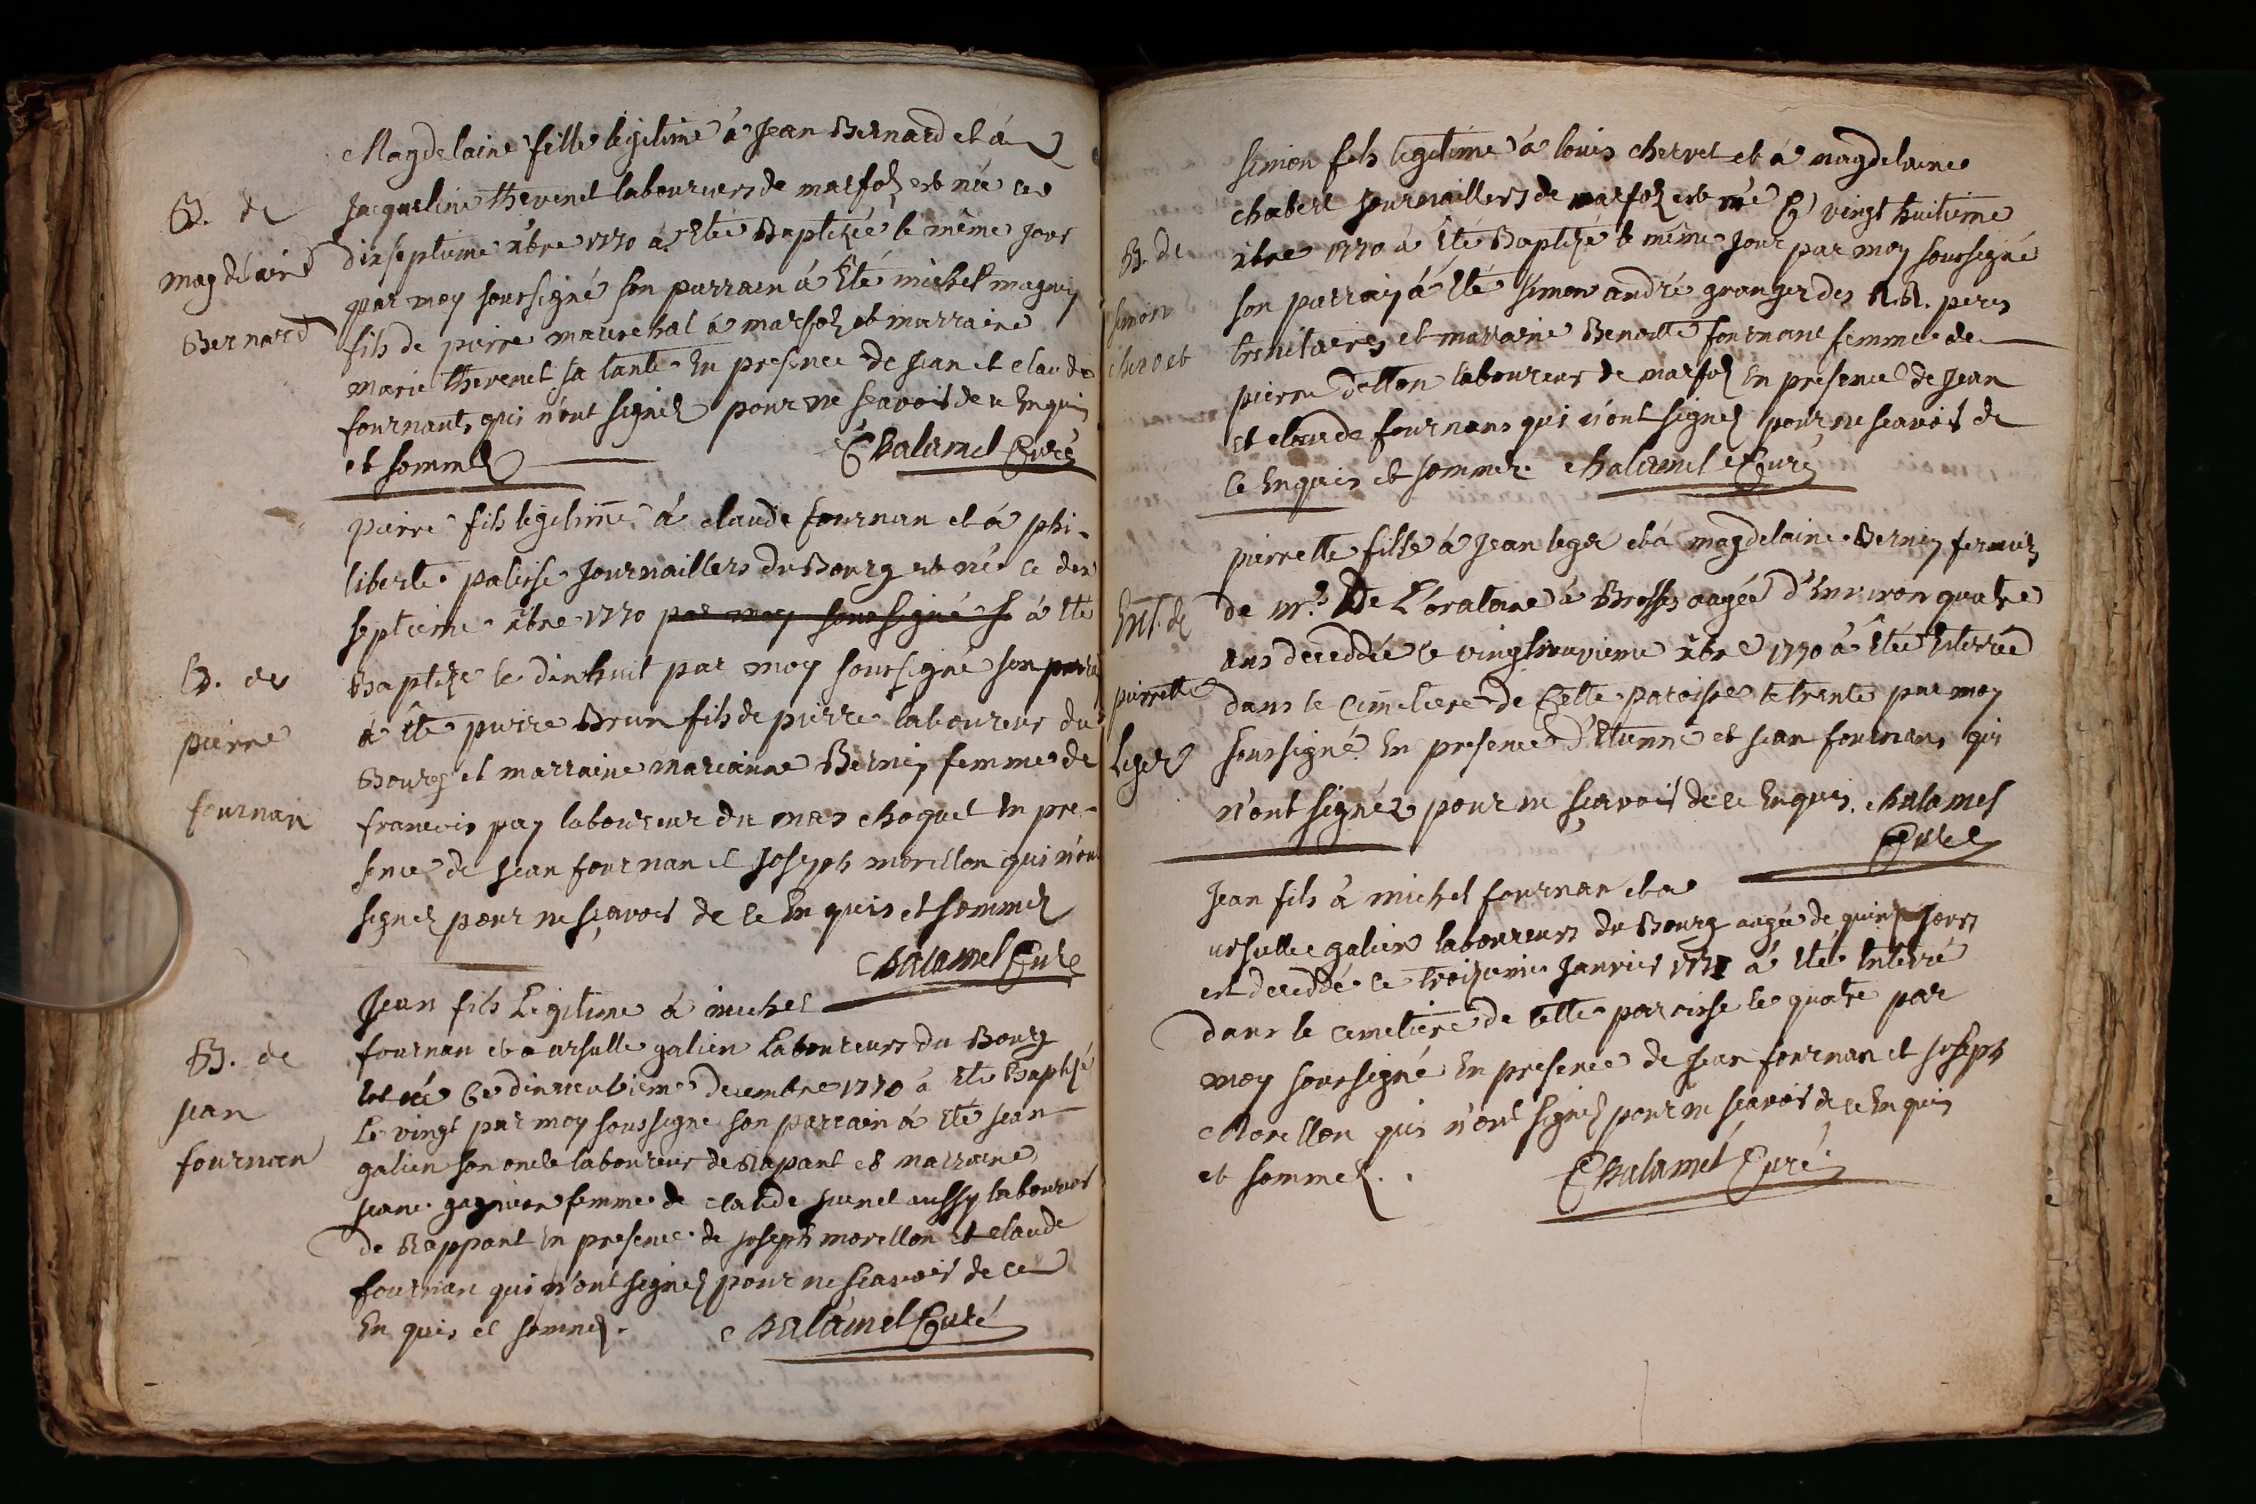 Magdelaine fille legitime à Jean Bernard et à
B. de
magdelaine
Bernard
Jacqueline thevenet laboureurs de marfoz est née ce
dixseptieme xbre 1770 à Eté Baptizée le même jour
par moy soussigné son parrain à Eté michel magnin
fils de pierre marechal à marfoz et marraine
marie thevenet sa tante En presence de Jean et claude
fournants qui n'ont signez pour ne scavoir de ce Enquis
et sommez Chalamel Curé
pierre fils legitime à claude fournan et à phi-
liberte palisse Journaillers du Bourg est né ce dix
septieme xbre 1770 par moy soussigné s à Eté
B. de
pierre
fournan
Baptize le dixhuit par moy soussigné son parra
à Eté pierre Brun fils de pierre laboureur du
Bourg et marraine marianne Bernin femme de
francois pay laboureur du mas choquet En pre-
sence de jean fournan et joseph morellon qui n'ont
signez pour ne sçavoir de ce Enquis et sommez
Chalamel Curé
Jean fils Legitime à michel
B. de
jean
fournan
fournan et a ursulle galien Laboureurs du Bourg
est né Ce dixneuvieme decembre 1770 à Eté Baptizé
Le vingt par moy soussigné son parrain à Eté jean
galien son oncle laboureur de Rapant et marraine
jeane gagnion femme de claude junet aussy laboureur
de Rappant En presence de joseph morellon et claude
fournan qui n'ont signez pour ne scavoir de ce
En quis et sommez. Chalamel Curé
Simon fils legitime à louis chervet et à magdelaine
B. de
simon
chervet
chabert journaillers de marfoz est né Ce vingt huitieme
xbre 1770 à Eté Baptizé le même jour par moy soussigné
son parrain à Eté simon andré granger des R.R. peres
trinitaires et marraine Benoitte fournant femme de
pierre dellon laboureur de marfoz En presence de Jean
et claude fournans qui n'ont signez pour ne scavoir de
ce Enquis et sommez. Chalamel Curé
pierrette fille à Jean leger et à magdelaine Bernin fermiers
Ent. de
pierrette
Leger
de mrs De L'oratoire à Brosses aagée d'Environ quatre
ans decedée le vingtneuvieme xbre 1770 à Eté Enterrée
dans le Cimetiere de Cette paroisse le trente par moy
soussigné En presence d'Etienne et jean fournans qui
n'ont signéz pour ne sçavoir de ce Enquis. Chalamel
Curé
Jean fils à michel fournan et a
ursulle galien laboureurs du Bourg aagé de quinze jours
est decedé ce troizieme Janvier 1771 à Eté Enterré
dans le cimetiere de Cette paroisse le quatre par
moy soussigné En presence de jean fournan et joseph
Morellon qui n'ont signez pour ne scavoir de ce Enquis
et sommez. Chalamel Curé